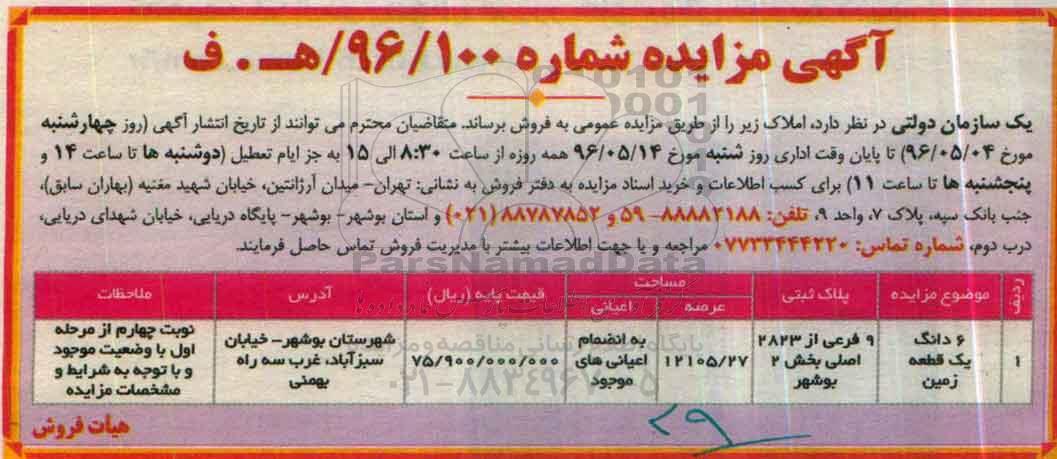 آگهی مزایده شماره ۹۶/۱۰۰/هـ . ف
یک سازمان دولتی در نظر دارد، املاک زیر را از طریق مزایده عمومی به فروش برساند. متقاضیان محترم می توانند از تاریخ انتشار آگهی (روز چهارشنبه
مورخ ۹۶/۰۵/۰۴) تا پایان وقت اداری روز شنبه مورخ ۹۶/۰۵/۱۴ همه روزه از ساعت ۸:۳۰ الی ۱۵ به جز ایام تعطیل (دوشنبه ها تا ساعت ۱۴ و
پنجشنبه ها تا ساعت ۱۱) برای کسب اطلاعات و خرید اسناد مزایده به دفتر فروش به نشانی: تهران- میدان آرژانتین، خیابان شهید مغنیه (بهاران سابق)،
جنب بانک سپه، پلاک ۷، واحد ۹، تلفن: ۸۸۸۸۲۱۸۸- ۵۹ و ۸۸۷۸۷۸۵۲ (۰۲۱) و استان بوشهر- بوشهر- پایگاه دریایی، خیابان شهدای دریایی،
درب دوم، شماره تماس: ۰۷۷۳۳۴۴۴۲۲۰ مراجعه و یا جهت اطلاعات بیشتر با مدیریت فروش تماس حاصل فرمایند.
ردیف موضوع مزایده پلاک ثبتی مساحت قیمت پایه (ریال) آدرس ملاحظات
عرصه اعیانی
۱ ۶ دانگ یک قطعه زمین ۹ فرعی از ۲۸۲۳ اصلی بخش ۲ بوشهر ۱۲۱۰۵/۲۷ به انضمام اعیانی های موجود ۷۵/۹۰۰/۰۰۰/۰۰۰ شهرستان بوشهر- خیابان سبزآباد، غرب سه راه بهمنی نوبت چهارم از مرحله اول با وضعیت موجود و با توجه به شرایط و مشخصات مزایده
هیأت فروش
۲۹
ParsNamadData